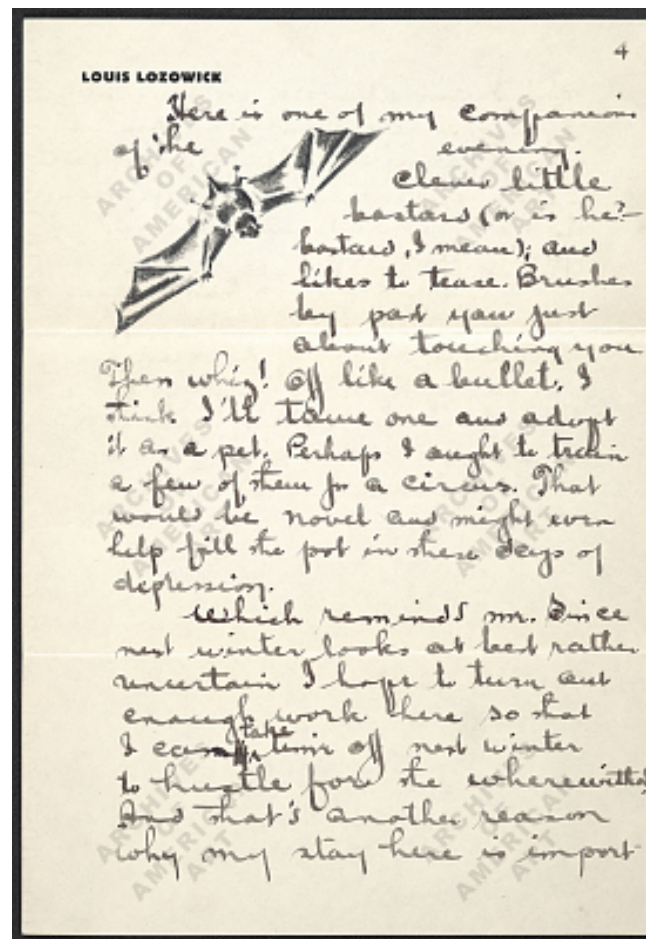 4
LOUIS LOZOWICK
Here is one of my companions
of the evening.
Clever little
bastard (or is he?
bastard, I mean); and
likes to tease. Brushes
by past you just
about touching you
Then whiz! off like a bullet. I
think I'll tame one and adopt
it as a pet. Perhaps I ought to train
a few of them for a circus. That
would be novel and might even
help fill the pot in these days of
depression.
Which reminds me. Since
next winter looks at best rather
uncertain I hope to turn out
enough work here so that
I can take time off next winter
to hustle for the wherewithal
And that's another reason
why my stay here is import-
ARCHIVES
OF
AMERICAN
ART
ARCHIVES
OF
AMERICAN
ART
ARCHIVES
OF
AMERICAN
ART
ARCHIVES
OF
AMERICAN
ART
ARCHIVES
OF
AMERICAN
ART
ARCHIVES
OF
AMERICAN
ART